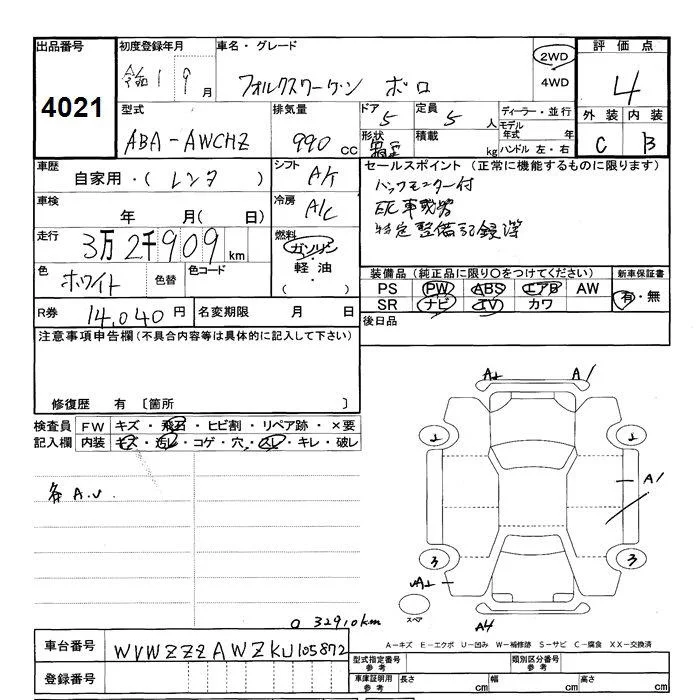 出品番号
4021
初度登録年月
令和 1 9 月
車名・グレード
フォルクスワーゲン ポロ
2WD
4WD
評価点
4
外装 内装
C B
型式
ABA-AWCHZ
排気量
990 CC
ドア 5
形状
定員 5 人
積載 kg
ディーラー・並行
モデル年式 年
ハンドル 左・右
車歴
自家用・( レンタ )
シフト A/T
車検
年 月( 日)
冷房 A/C
走行
3万2千909 km
燃料
ガソリン・軽油・( )
色
ホワイト
色替
色コード
R券 14,040 円
名変期限 月 日
セールスポイント(正常に機能するものに限ります)
バックモニター付
ETC車載器
特定整備記録簿
装備品(純正品に限り○をつけてください)
PS PW ABS エアB AW
SR ナビ TV カワ
新車保証書
有・無
後日品
注意事項申告欄(不具合内容等は具体的に記入して下さい)
修復歴 有 〔箇所 〕
検査員記入欄
FW キズ・飛石・ヒビ割・リペア跡・×要
内装 キズ・汚レ・コゲ・穴・スレ・キレ・破レ
各 A.U.
A1
A1
A1
3 3
A4
スペア
32910km
A-キズ E-エクボ U-凹み W-補修跡 S-サビ C-腐食 XX-交換済
車台番号
WVWZZZAWZKU105872
登録番号
型式指定番号 参考
類別区分番号 参考
車庫証明用 参考
長さ cm 幅 cm 高さ cm